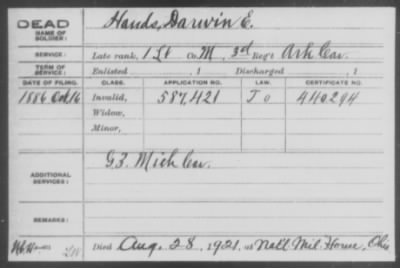 DEAD
NAME OF SOLDIER:
Hands, Darwin E.
SERVICE:
Late rank, 1 Lt Co. M, 3rd Reg't Ark Cav.
TERM OF SERVICE:
Enlisted , 1 Discharged , 1
DATE OF FILING. CLASS. APPLICATION NO. LAW. CERTIFICATE NO.
1886 Oct 16 Invalid, 587,421 440294
Widow,
Minor,
ADDITIONAL SERVICES:
G 3. Mich Cav.
REMARKS:
Died Aug. 28, 1921, at Natl. Mil. Home, Ohio